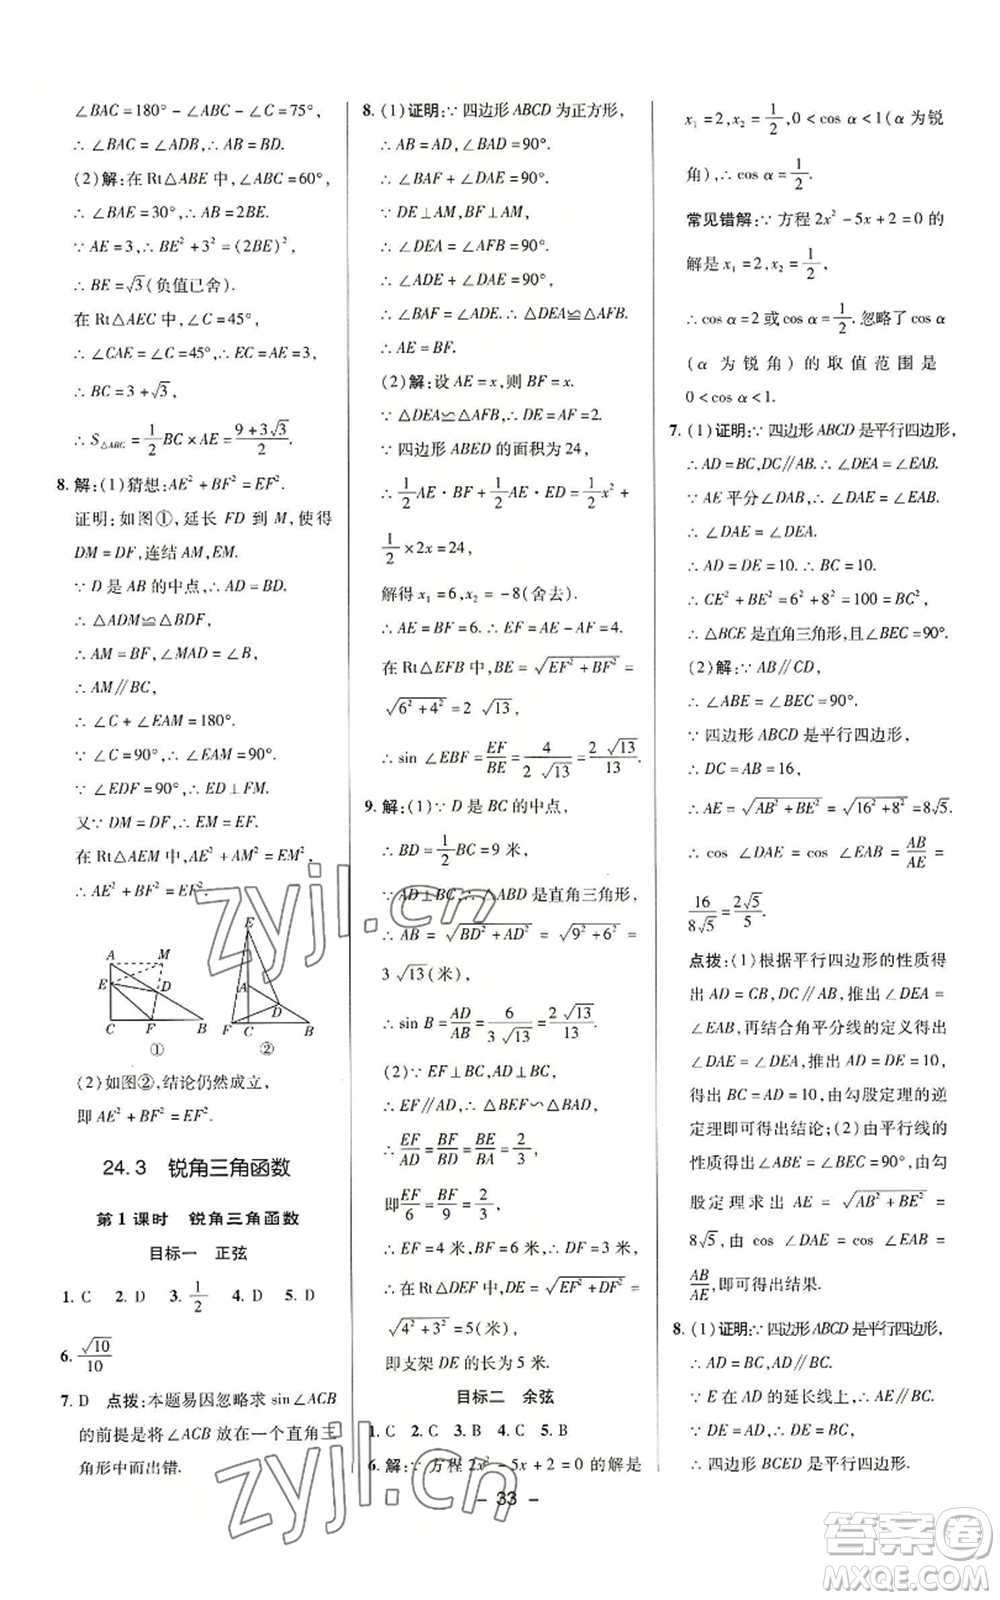 ∠BAC=180°-∠ABC-∠C=75°,
∴∠BAC=∠ADB,∴AB=DB.
(2)解:在Rt△ABE中,∠ABC=60°,
∴∠BAE=30°,∴AB=2BE.
∵AE=3,∴BE²+3²=(2BE)²
∴BE=√3(负值已舍).
在Rt△AEC中,∠C=45°,
∴∠CAE=∠C=45°,∴EC=AE=3,
∴BC=3+√3,
∴S△ABC=1/2 BC×AE=(9+3√3)/2.
8.解:(1)猜想:AE²+BF²=EF².
证明:如图①,延长FD到M,使得
DM=DF,连结AM,EM.
∵D是AB的中点,∴AD=BD.
∴△ADM≌△BDF.
∴AM=BF,∠MAD=∠B.
∴AM∥BC,
∴∠C+∠EAM=180°.
∵∠C=90°,∴∠EAM=90°.
∵∠EDF=90°,∴ED⊥FM.
又∵DM=DF,∴EM=EF.
在Rt△AEM中,AE²+AM²=EM²,
∴AE²+BF²=EF².
A M E D C F B ①
E A D F C B ②
(2)如图②,结论仍然成立,
即AE²+BF²=EF².
24.3 锐角三角函数
第1课时 锐角三角函数
目标一 正弦
1.C 2.D 3.1/2 4.D 5.D
6.√10/10
7.D 点拨:本题易因忽略求sin∠ACB
的前提是将∠ACB放在一个直角三
角形中而出错.
8.(1)证明:∵四边形ABCD为正方形,
∴AB=AD,∠BAD=90°.
∴∠BAF+∠DAE=90°.
∵DE⊥AM,BF⊥AM,
∴∠DEA=∠AFB=90°.
∴∠ADE+∠DAE=90°,
∴∠BAF=∠ADE.∴△DEA≌△AFB.
∴AE=BF.
(2)解:设AE=x,则BF=x.
∵△DEA≌△AFB,∴DE=AF=2.
∵四边形ABED的面积为24,
∴1/2 AE·BF+1/2 AE·DE=1/2 x²+
1/2×2x=24,
解得x₁=6,x₂=-8(舍去).
∴AE=BF=6.∴EF=AE-AF=4.
在Rt△EFB中,BE=√(EF²+BF²)=
√(6²+4²)=2√13,
∴sin∠EBF=EF/BE=4/(2√13)=2√13/13.
9.解:(1)∵D是BC的中点,
∴BD=1/2 BC=9米,
∵AD⊥BC,∴△ABD是直角三角形,
∴AB=√(BD²+AD²)=√(9²+6²)=
3√13(米),
∴sin B=AD/AB=6/(3√13)=2√13/13.
(2)∵EF⊥BC,AD⊥BC,
∴EF∥AD,∴△BEF∽△BAD,
∴EF/AD=BF/BD=BE/BA=2/3,
即EF/6=BF/9=2/3,
∴EF=4米,BF=6米,∴DF=3米,
∴在Rt△DEF中,DE=√(EF²+DF²)=
√(4²+3²)=5(米),
即支架DE的长为5米.
目标二 余弦
1.C 2.C 3.B 4.C 5.B
6.解:∵方程2x²-5x+2=0的解是
x₁=2,x₂=1/2,0<cos α<1(α为锐
角),∴cos α=1/2.
常见错解:∵方程2x²-5x+2=0的
解是x₁=2,x₂=1/2,
∴cos α=2或cos α=1/2.忽略了cos α
(α为锐角)的取值范围是
0<cos α<1.
7.(1)证明:∵四边形ABCD是平行四边形,
∴AD=BC,DC∥AB.∴∠DEA=∠EAB.
∵AE平分∠DAB,∴∠DAE=∠EAB.
∴∠DAE=∠DEA.
∴AD=DE=10.∴BC=10.
∴CE²+BE²=6²+8²=100=BC²,
∴△BCE是直角三角形,且∠BEC=90°.
(2)解:∵AB∥CD,
∴∠ABE=∠BEC=90°.
∵四边形ABCD是平行四边形,
∴DC=AB=16,
∴AE=√(AB²+BE²)=√(16²+8²)=8√5.
∴cos∠DAE=cos∠EAB=AB/AE=
16/(8√5)=2√5/5.
点拨:(1)根据平行四边形的性质得
出AD=CB,DC∥AB,推出∠DEA=
∠EAB,再结合角平分线的定义得出
∠DAE=∠DEA,推出AD=DE=10,
得出BC=AD=10,由勾股定理的逆
定理即可得出结论;(2)由平行线的
性质得出∠ABE=∠BEC=90°,由勾
股定理求出AE=√(AB²+BE²)=
8√5,由cos∠DAE=cos∠EAB=
AB/AE,即可得出结果.
8.(1)证明:∵四边形ABCD是平行四边形,
∴AD=BC,AD∥BC.
∵E在AD的延长线上,∴DE∥BC.
∵DE=AD,∴DE=BC,
∴四边形BCED是平行四边形.
- 33 -
zyjl.cn
zyjl.cn
答案卷
MXQE.COM